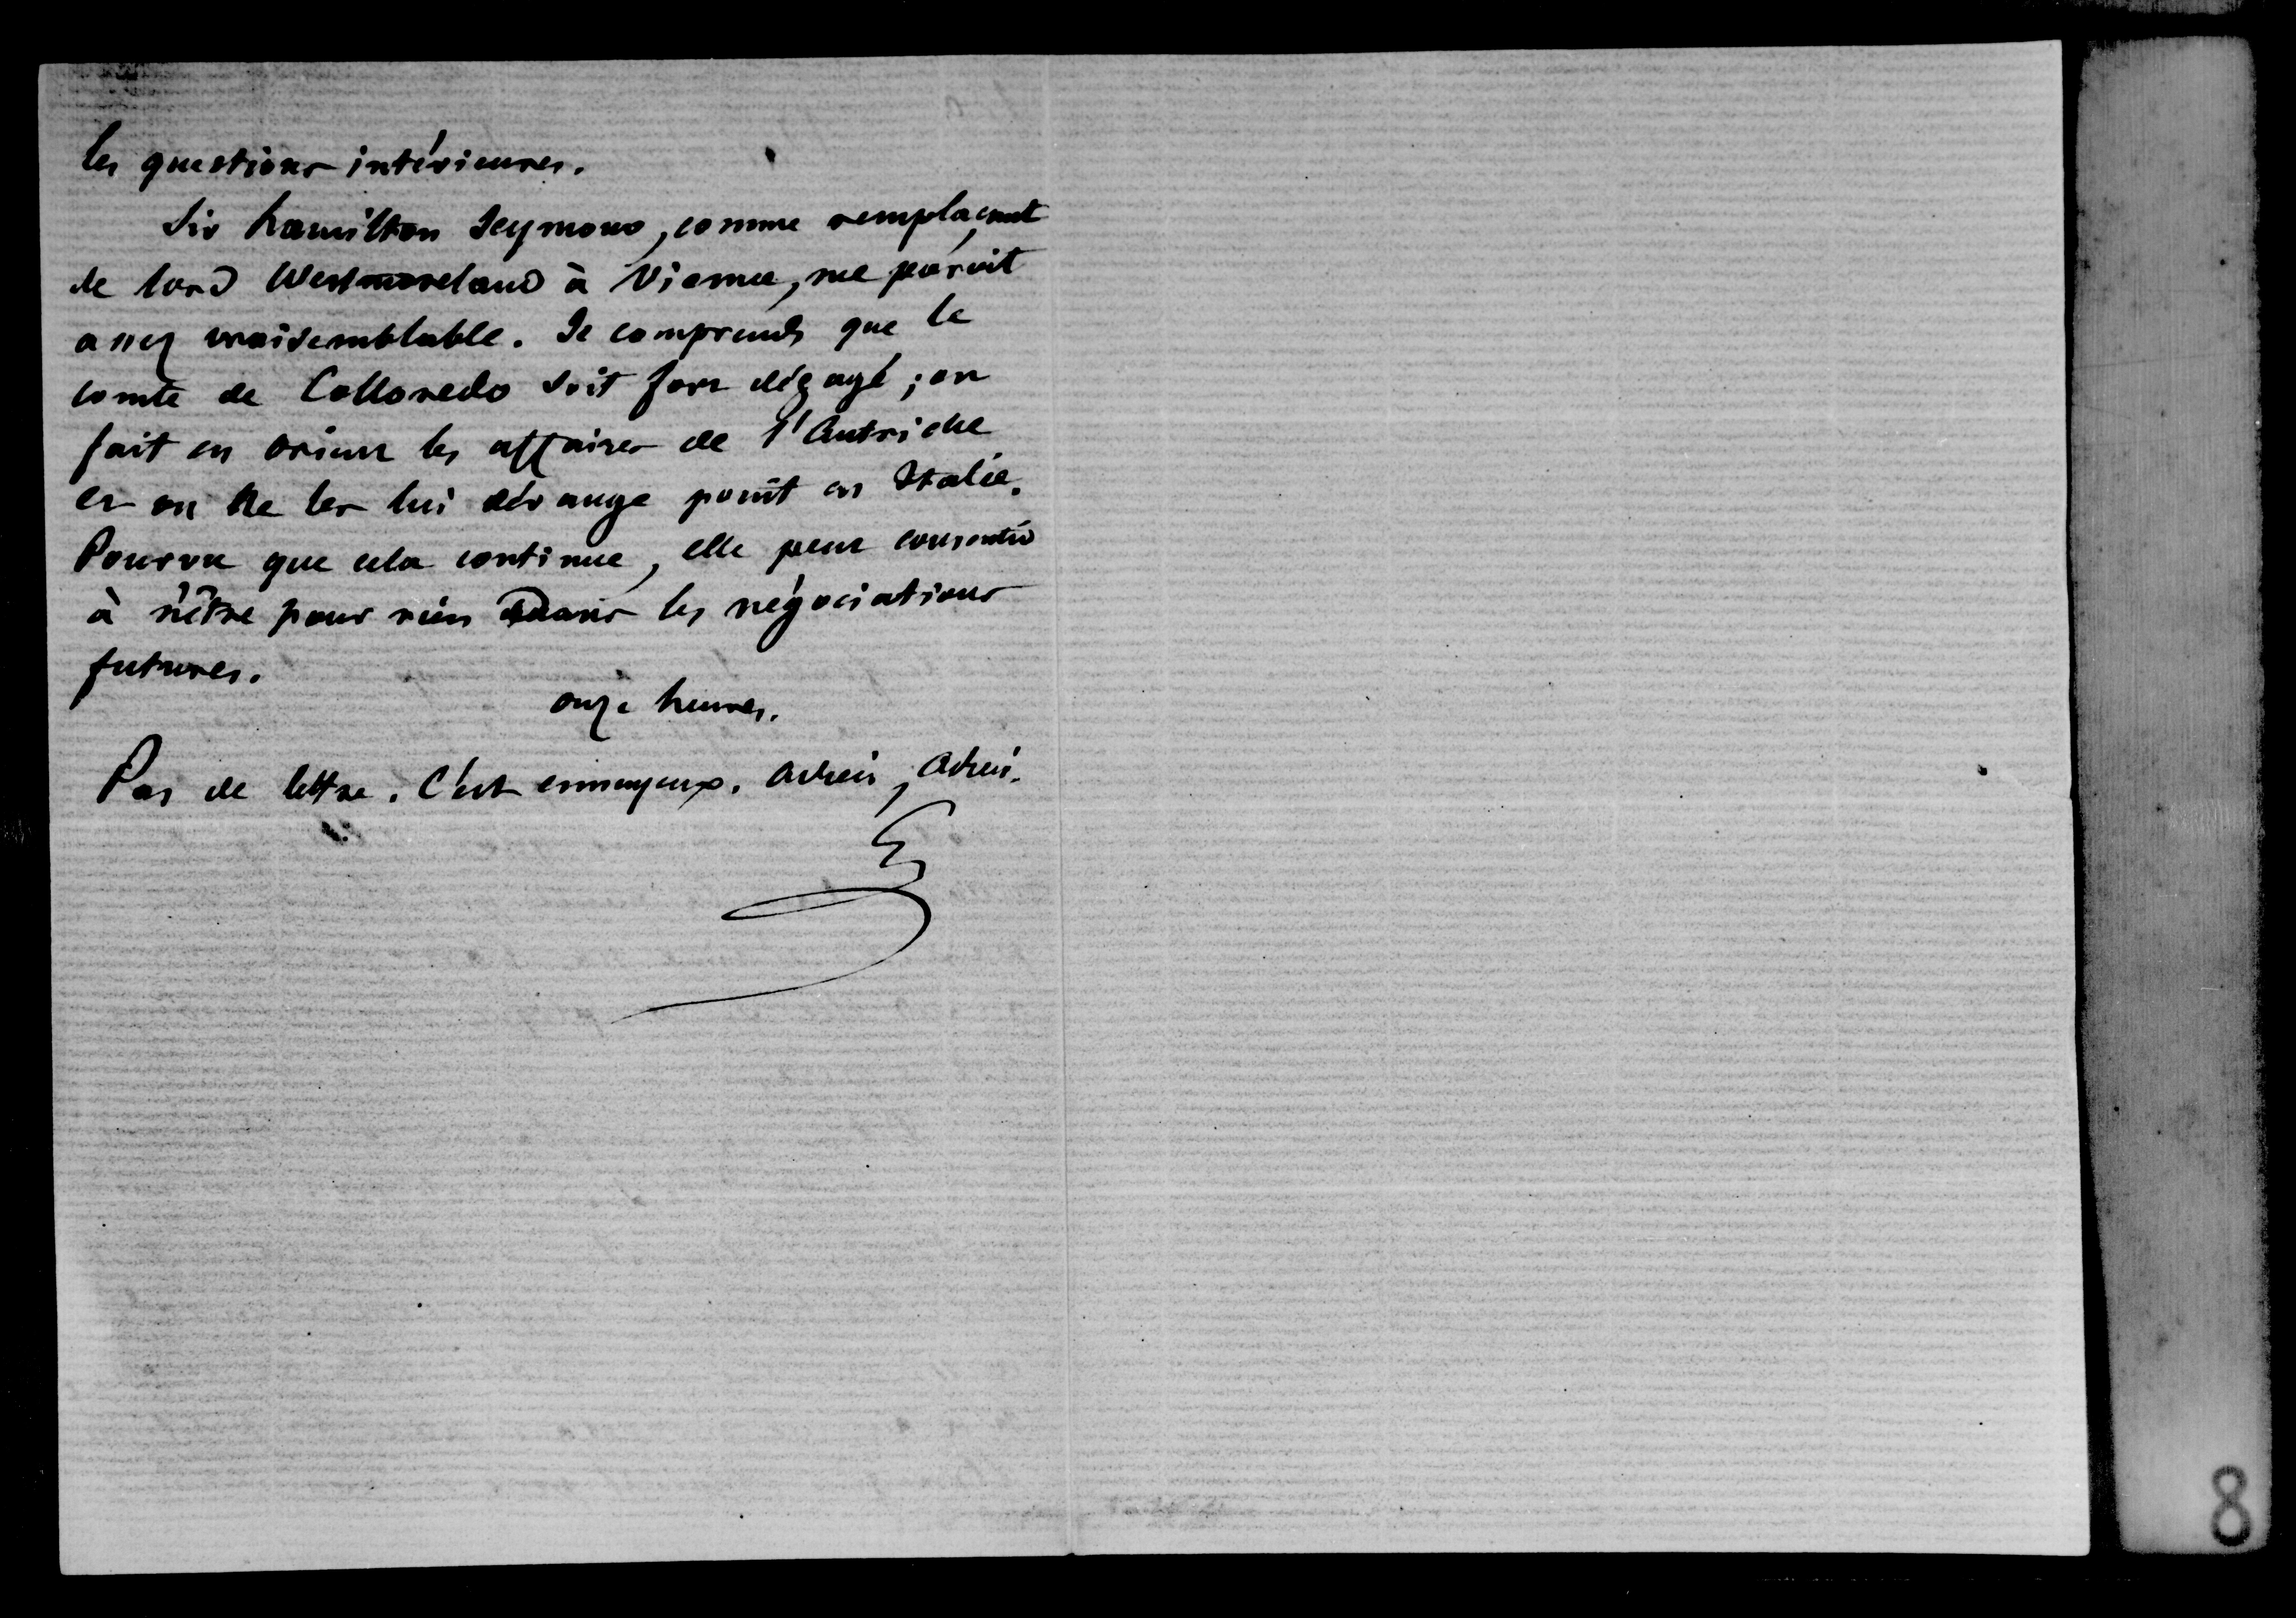 les questions intérieures.
Sir hamilton Seymour, comme remplaçant
de lord Westmoreland à Vienne, me paroit
assez vraisemblable. Je comprends que le
comte de Colloredo soit fort dégagé ; on
fait en orient les affaires de l'Autriche
et on ne les lui dérange point en Italie.
Pourvu que cela continue, elle peut consentir
à n'être pour rien dans les négociations
futures.
onze heures.
Pas de lettre. C'est ennuyeux. Adieu, Adieu.
G
8